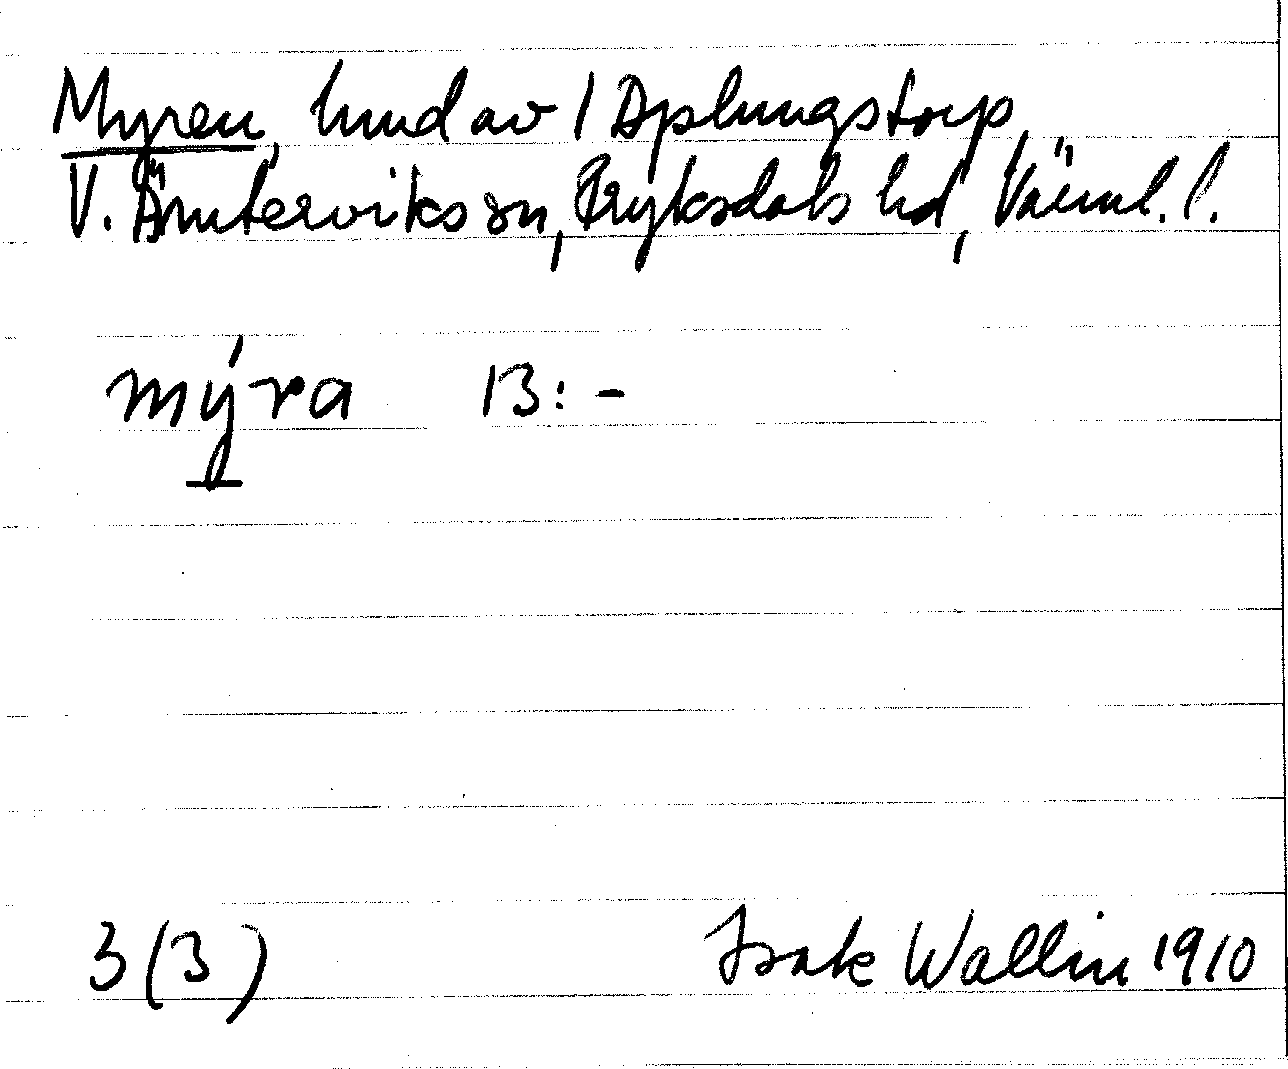 Myren, hmd av 1 Aplungstorp,
V. Ämterviks sn, Fryksdals hd, Värml. l.
mýra 13:-
3(3) Isak Wallin 1910